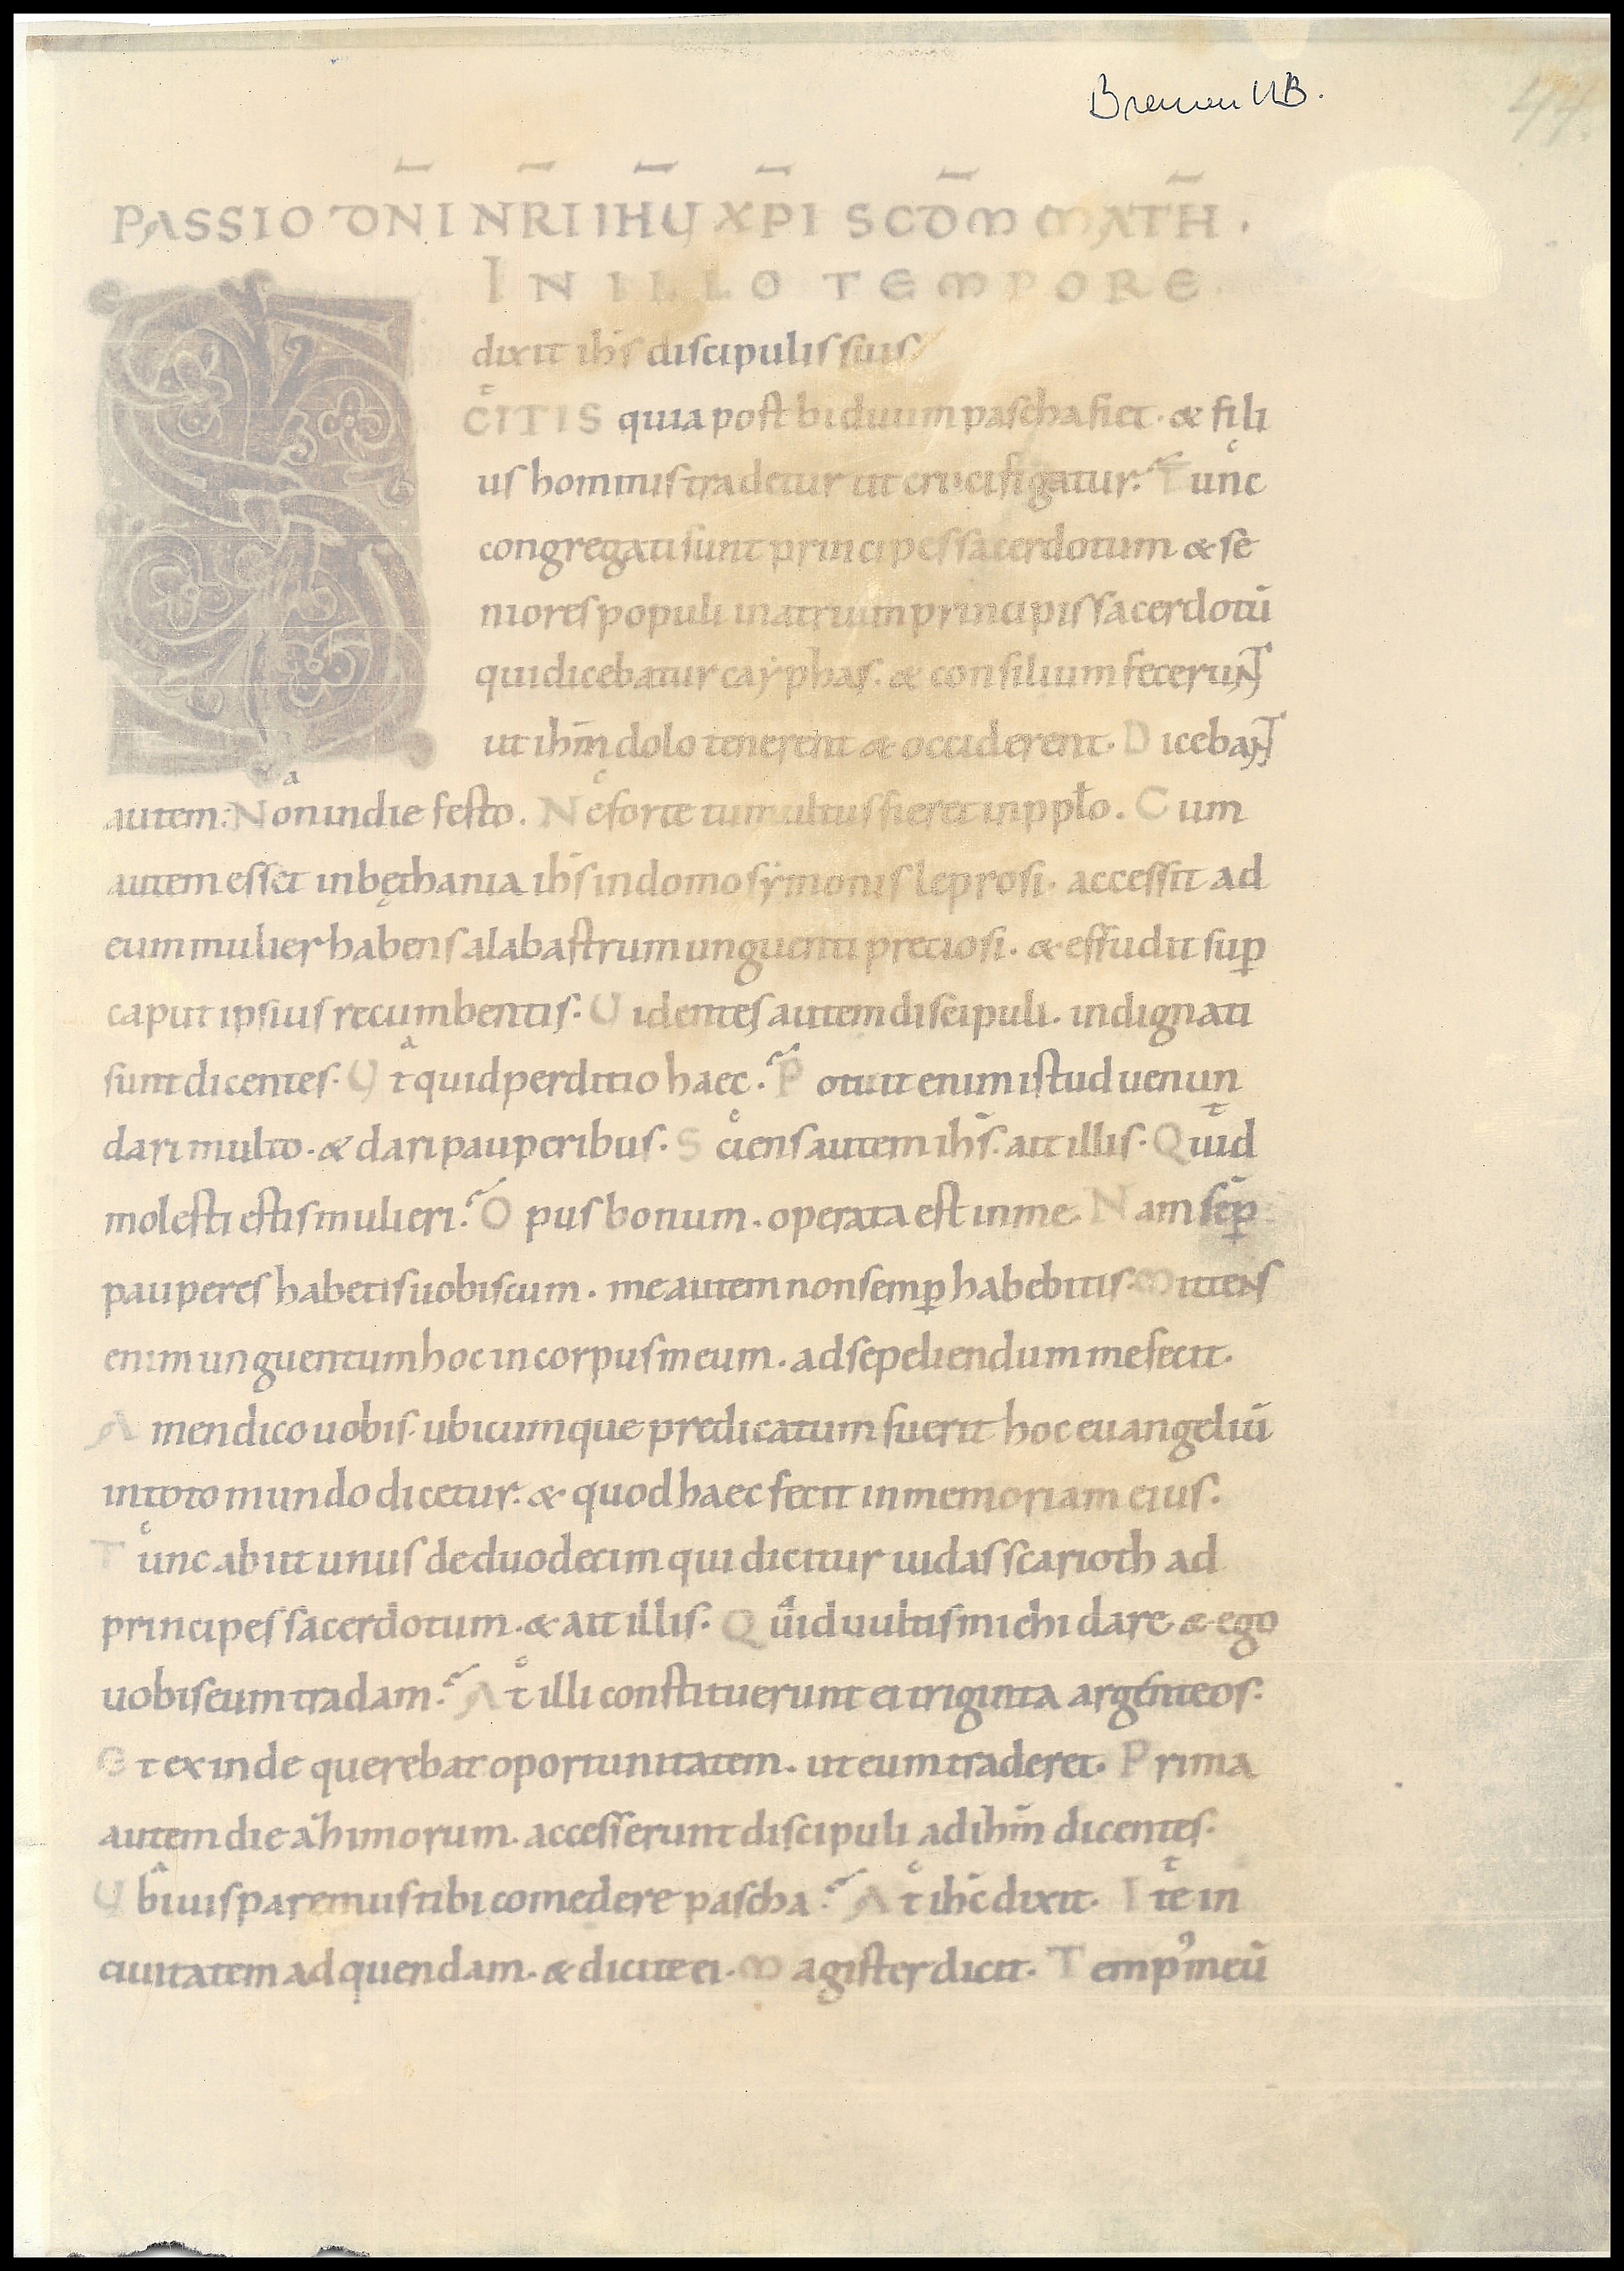 Bremen UB.
44.
PASSIO DN̄I NR̄I IH̄U XP̄I SCDM̄ MATH̄.
IN ILLO TEMPORE
dixit ihs̄ discipulis suis
SCITIS quia post biduum pascha fiet. & fili
us hominis tradetur ut crucifigatur. Tunc
congregati sunt principes sacerdotum & se
niores populi in atrium principis sacerdotū
qui dicebatur cayphas. & consilium fecerunt
ut ihm̄ dolo tenerent & occiderent. Diceban̄t
autem. Non in die festo. Ne forte tumultus fieret in pplo. Cum
autem esset in bęthania ihs̄ in domo symonis leprosi. accessit ad
eum mulier habens alabastrum unguenti preciosi. & effudit sup̲
caput ipsius recumbentis. Uidentes autem discipuli. indignati
sunt dicentes. Ut quid perditio haec. Potuit enim istud uenun
dari multo. & dari pauperibus. Sciens autem ihs̄. ait illis. Quid
molesti estis mulieri. Opus bonum. operata est in me. Nam semp̲
pauperes habetis uobiscum. me autem non semp̲ habebitis. Mittens
enim unguentum hoc in corpus meum. ad sepeliendum me fecit.
Amen dico uobis. ubicumque predicatum fuerit hoc euangeliū
in toto mundo dicetur. & quod haec fecit in memoriam eius.
Tunc abiit unus de duodecim qui dicitur iudas scarioth ad
principes sacerdotum. & ait illis. Quid uultis michi dare & ego
uobis eum tradam. At illi constituerunt ei triginta argenteos.
Et exinde querebat oportunitatem. ut eum traderet. Prima
autem die azimorum. accesserunt discipuli ad ihm̄ dicentes.
Ubi uis paremus tibi comedere pascha. At ihc̄ dixit. Ite in
ciuitatem ad quendam. & dicite ei. Magister dicit. Temp' meū